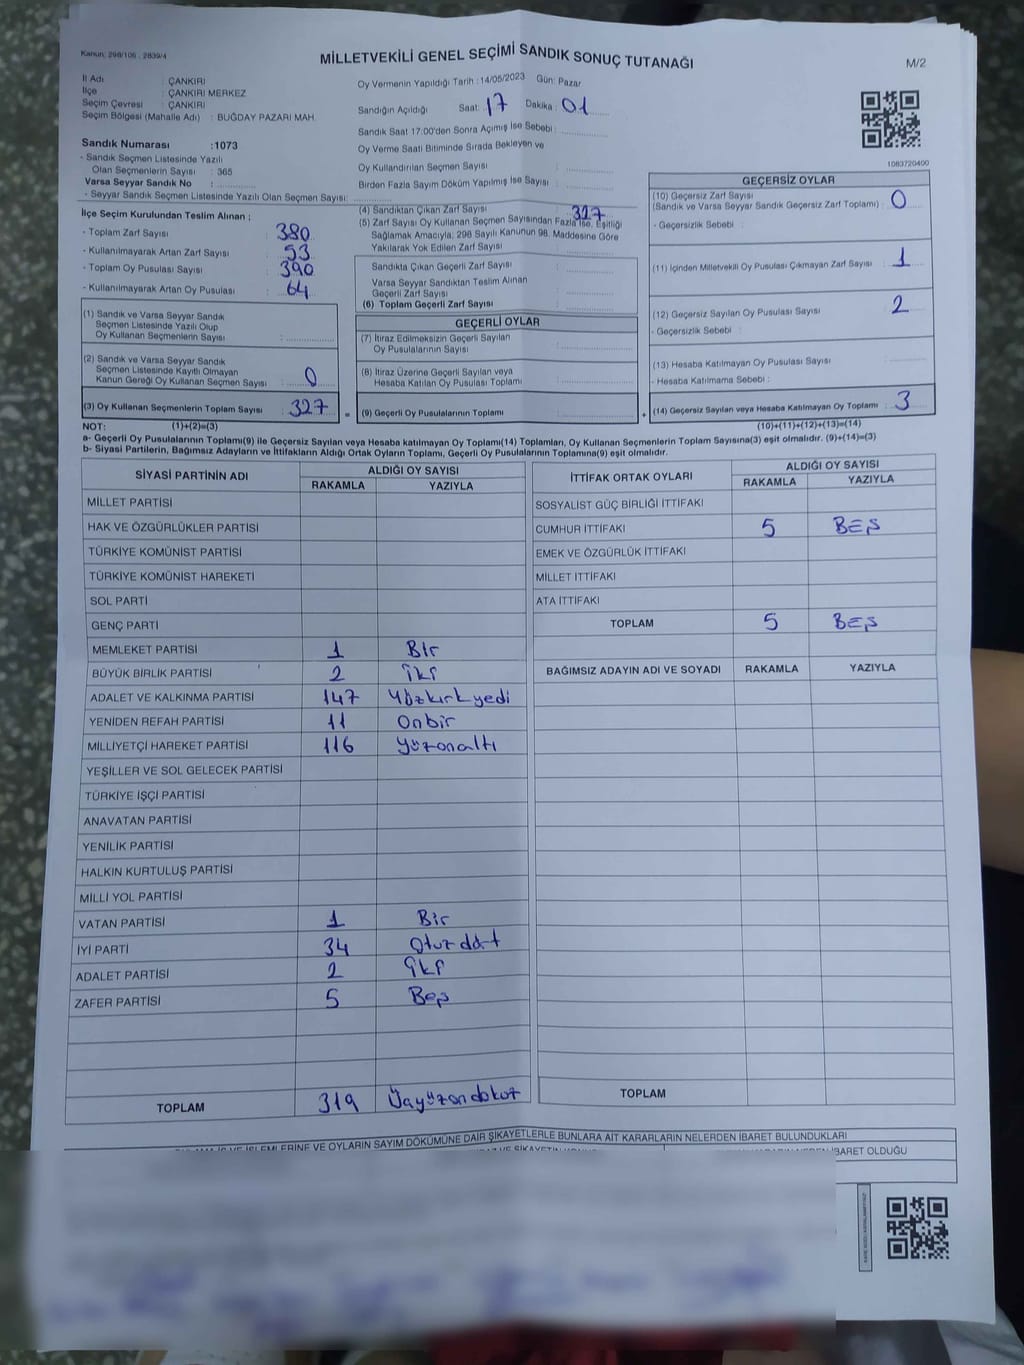 Kanun: 298/106 - 2839/4
MİLLETVEKİLİ GENEL SEÇİMİ SANDIK SONUÇ TUTANAĞI
M/2
İl Adı : ÇANKIRI
İlçe : ÇANKIRI MERKEZ
Seçim Çevresi : ÇANKIRI
Seçim Bölgesi (Mahalle Adı) : BUĞDAY PAZARI MAH.
Sandık Numarası :1073
- Sandık Seçmen Listesinde Yazılı
Olan Seçmenlerin Sayısı : 365
Varsa Seyyar Sandık No :
- Seyyar Sandık Seçmen Listesinde Yazılı Olan Seçmen Sayısı:
Oy Vermenin Yapıldığı Tarih : 14/05/2023 Gün: Pazar
Sandığın Açıldığı Saat: 17 Dakika : 01
Sandık Saat 17.00'den Sonra Açılmış İse Sebebi :
Oy Verme Saati Bitiminde Sırada Bekleyen ve
Oy Kullandırılan Seçmen Sayısı :
Birden Fazla Sayım Döküm Yapılmış İse Sayısı :
1083720400
İlçe Seçim Kurulundan Teslim Alınan :
- Toplam Zarf Sayısı : 380
- Kullanılmayarak Artan Zarf Sayısı : 53
- Toplam Oy Pusulası Sayısı : 390
- Kullanılmayarak Artan Oy Pusulası : 64
(1) Sandık ve Varsa Seyyar Sandık
Seçmen Listesinde Yazılı Olup
Oy Kullanan Seçmenlerin Sayısı :
(2) Sandık ve Varsa Seyyar Sandık
Seçmen Listesinde Kayıtlı Olmayan
Kanun Gereği Oy Kullanan Seçmen Sayısı : 0
(3) Oy Kullanan Seçmenlerin Toplam Sayısı : 327
(1)+(2)=(3)
(4) Sandıktan Çıkan Zarf Sayısı : 327
(5) Zarf Sayısı Oy Kullanan Seçmen Sayısından Fazla İse, Eşitliği
Sağlamak Amacıyla; 298 Sayılı Kanunun 98. Maddesine Göre
Yakılarak Yok Edilen Zarf Sayısı
Sandıkta Çıkan Geçerli Zarf Sayısı :
Varsa Seyyar Sandıktan Teslim Alınan
Geçerli Zarf Sayısı :
(6) Toplam Geçerli Zarf Sayısı :
GEÇERLİ OYLAR
(7) İtiraz Edilmeksizin Geçerli Sayılan
Oy Pusulalarının Sayısı :
(8) İtiraz Üzerine Geçerli Sayılan veya
Hesaba Katılan Oy Pusulası Toplamı :
= (9) Geçerli Oy Pusulalarının Toplamı :
GEÇERSİZ OYLAR
(10) Geçersiz Zarf Sayısı
(Sandık ve Varsa Seyyar Sandık Geçersiz Zarf Toplamı) : 0
- Geçersizlik Sebebi :
(11) İçinden Milletvekili Oy Pusulası Çıkmayan Zarf Sayısı : 1
(12) Geçersiz Sayılan Oy Pusulası Sayısı : 2
- Geçersizlik Sebebi :
(13) Hesaba Katılmayan Oy Pusulası Sayısı :
- Hesaba Katılmama Sebebi :
+ (14) Geçersiz Sayılan veya Hesaba Katılmayan Oy Toplamı : 3
(10)+(11)+(12)+(13)=(14)
NOT:
a- Geçerli Oy Pusulalarının Toplamı(9) ile Geçersiz Sayılan veya Hesaba katılmayan Oy Toplamı(14) Toplamları, Oy Kullanan Seçmenlerin Toplam Sayısına(3) eşit olmalıdır. (9)+(14)=(3)
b- Siyasi Partilerin, Bağımsız Adayların ve İttifakların Aldığı Ortak Oyların Toplamı, Geçerli Oy Pusulalarının Toplamına(9) eşit olmalıdır.
SİYASİ PARTİNİN ADI ALDIĞI OY SAYISI
RAKAMLA YAZIYLA
MİLLET PARTİSİ
HAK VE ÖZGÜRLÜKLER PARTİSİ
TÜRKİYE KOMÜNİST PARTİSİ
TÜRKİYE KOMÜNİST HAREKETİ
SOL PARTİ
GENÇ PARTİ
MEMLEKET PARTİSİ 1 Bir
BÜYÜK BİRLİK PARTİSİ 2 İki
ADALET VE KALKINMA PARTİSİ 147 Yüzkırkyedi
YENİDEN REFAH PARTİSİ 11 Onbir
MİLLİYETÇİ HAREKET PARTİSİ 116 Yüzonaltı
YEŞİLLER VE SOL GELECEK PARTİSİ
TÜRKİYE İŞÇİ PARTİSİ
ANAVATAN PARTİSİ
YENİLİK PARTİSİ
HALKIN KURTULUŞ PARTİSİ
MİLLİ YOL PARTİSİ
VATAN PARTİSİ 1 Bir
İYİ PARTİ 34 Otuzdört
ADALET PARTİSİ 2 İki
ZAFER PARTİSİ 5 Beş
TOPLAM 319 Üçyüzondokuz
İTTİFAK ORTAK OYLARI ALDIĞI OY SAYISI
RAKAMLA YAZIYLA
SOSYALİST GÜÇ BİRLİĞİ İTTİFAKI
CUMHUR İTTİFAKI 5 BEŞ
EMEK VE ÖZGÜRLÜK İTTİFAKI
MİLLET İTTİFAKI
ATA İTTİFAKI
TOPLAM 5 BEŞ
BAĞIMSIZ ADAYIN ADI VE SOYADI RAKAMLA YAZIYLA
TOPLAM
İŞLEMLERİNE VE OYLARIN SAYIM DÖKÜMÜNE DAİR ŞİKAYETLERLE BUNLARA AİT KARARLARIN NELERDEN İBARET BULUNDUKLARI
İBARET OLDUĞU